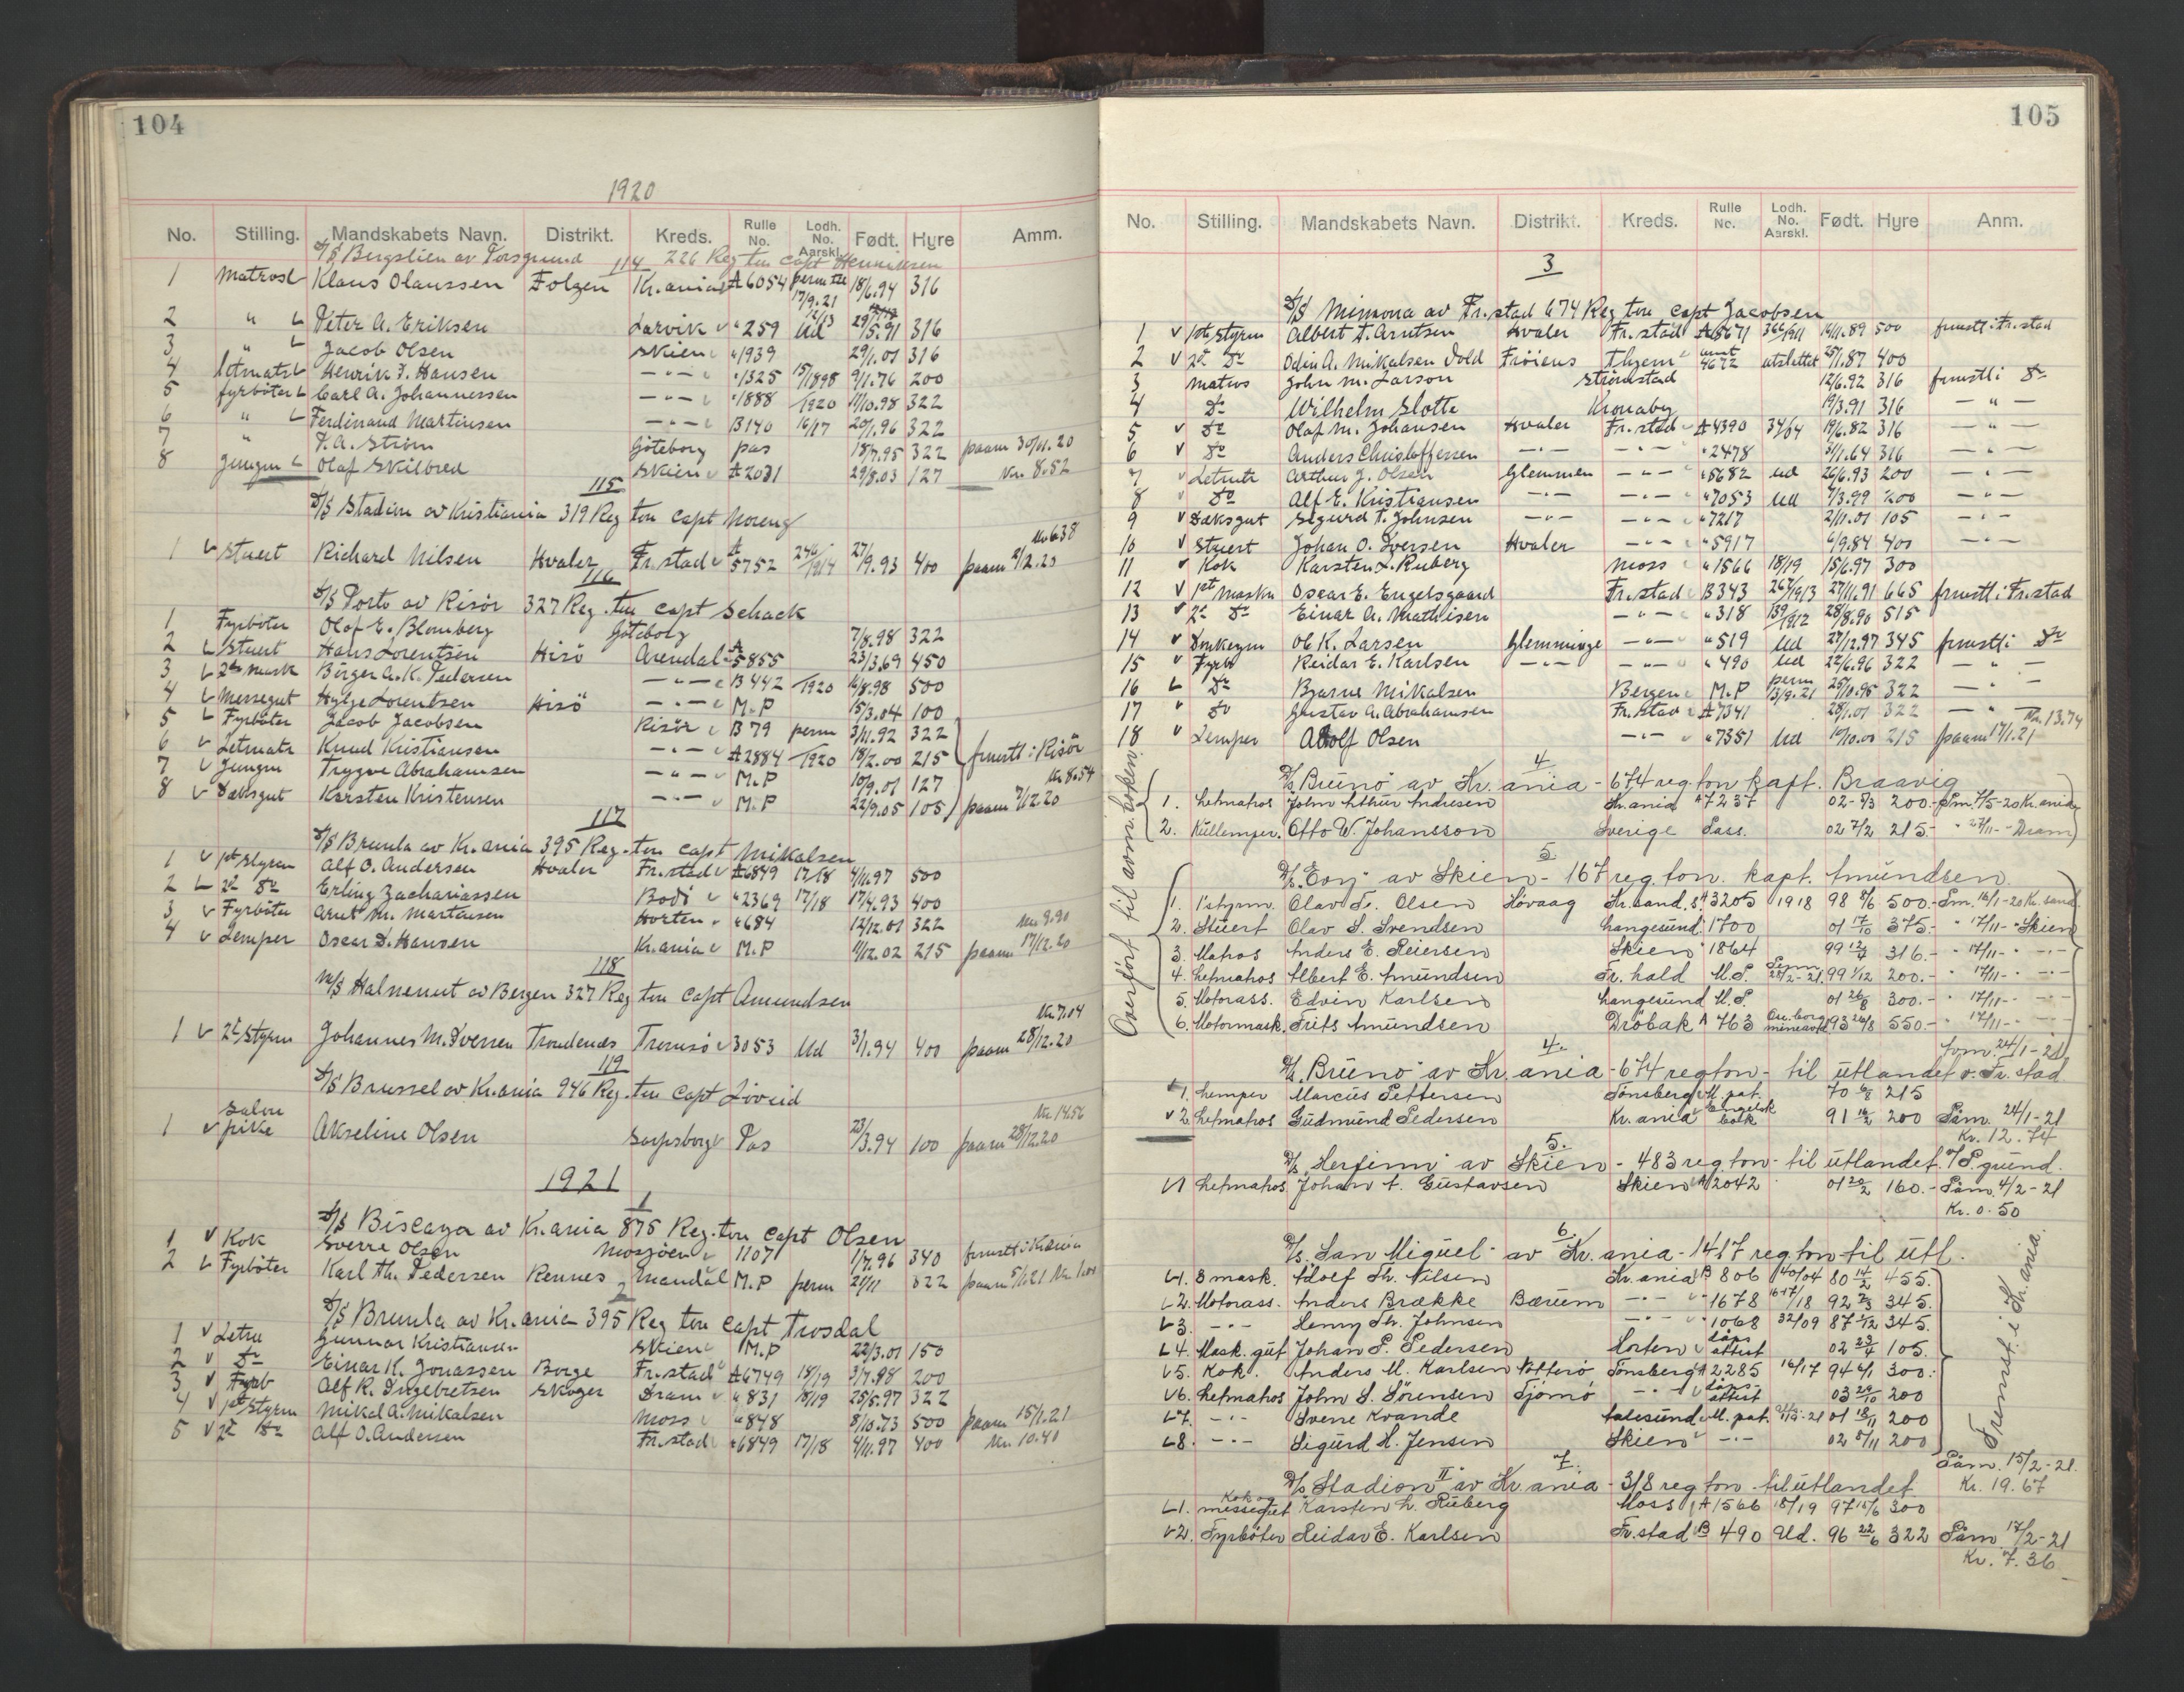 104
1920
No. Stilling. Mandskabets Navn. Distrikt. Kreds. Rulle No. Lodh. No. Aarskl. Født. Hyre Amm.
D/S Bergslien av Porsgrund 114 226 Reg ton Capt Henriksen
1 Matros Klaus Olaussen Folgen Kr.ania A 6054 perm til 17/9.21 18/6.94 316
2 " Peter A. Eriksen Larvik " 259 Ud 29/5.91 316
3 " Jacob Olsen Skien " 1939 29/1.01 316
4 Letmatr Henrik F. Hansen — " — " 1325 15/1898 9/1.76 200
5 fyrböter Carl A. Johannessen — " — " 1888 /1920 11/10.98 322
6 " Ferdinand Martinsen — " — B 140 16/17 20/1.96 322
7 " F. A. Ström Göteborg pas 18/7.95 322 paam 30/11.20
8 Jungm Olaf Skilbred Skien A 2031 29/8.03 127 Kr. 8.52
115
D/S Stadion av Kristiania 319 Reg ton Capt Noreng
Kr 6.38
1 Stuert Richard Nilsen Hvaler Fr.stad A 5752 246/1914 27/9.93 400 paam 2/12.20
116
D/S Porto av Risör 327 Reg. ton Capt Schack
1 Fyrböter Olof E. Blomberg Göteborg 7/8.98 322
2 Stuert Hans Lorentsen Hisö Arendal A 5855 23/3.69 450
3 2den mask Börger A. K. Pedersen — " — B 442 /1920 16/8.98 500
4 Messegut Hylge Lorentsen Hisö — " — M.P 15/3.04 100
5 Fyrböter Jacob Jacobsen Risör B 79 perm 3/11.92 322
6 Letmatr Knud Kristiansen — " — A 2884 /1920 18/2.00 215 frmstl i Risör
7 Jungm Trygve Abrahamsen — " — M.P 10/9.01 127 Kr 8.54
8 Dæksgut Karsten Kristensen — " — M.P 22/9.05 105 paam 7/12.20
117
D/S Brunla av Kr.ania 395 Reg. ton Capt Mikalsen
1 1st Styrm Alf O. Andersen Hvaler Fr.stad A 6849 17/18 4/11.97 500
2 2d Do Erling Zachariassen Bodö " 2369 17/18 17/4.93 400
3 Fyrböter Arnt Kr. Martinsen Horten " 684 12/12.01 322 Kr. 9.90
4 Lemper Oscar D. Hansen Kr.ania M.P 11/12.02 215 paam 17/12.20
118
M/S Halnenut av Bergen 327 Reg ton Capt Amundsen
Kr. 7.04
1 2d Styrm Johannes M. Iversen Trondenes Tromsö 3053 Ud 3/1.94 400 paam 28/12.20
119
D/S Brussel av Kr.ania 946 Reg. ton Capt Lövlid
Kr. 14.56
1 Salon pike Akseline Olsen Sarpsborg Pas 23/3.94 100 paam 28/12.20
1921
1
D/S Biscaya av Kr.ania 875 Reg. ton Capt Olsen
1 Kok Sverre Olsen Mosjöen 1107 1/7.96 340 frmstl i Kr.ania
2 Fyrböter Karl Th. Pedersen Rennes Mandal M.P perm 21/11 322 paam 5/1.21
2
D/S Brunla av Kr.ania 395 Reg ton Capt Trosdal
1 Letm Gunnar Kristiansen Skien M.P 22/3.01 150
2 Do Einar K. Jonassen Borge Fr.stad A 6749 18/19 3/7.98 200
3 Fyrb Alf R. Ingebretsen Skoger Dram " 831 18/19 25/5.97 322
4 1st Styrm Mikal A. Mikalsen Moss " 848 8/10.73 500 paam 15/1.21
5 2d Do Alf O. Andersen Fr.stad " 6849 17/18 4/11.97 400 Kr. 10.40
105
No. Stilling. Mandskabets Navn. Distrikt. Kreds. Rulle No. Lodh. No. Aarskl. Født. Hyre Anm.
3
D/S Mimona av Fr.stad 674 Reg ton Capt Jacobsen
1 1ste Styrm Albert A. Arntsen Hvaler Fr.stad A 6671 366/1911 16/11.89 500 frmstl i Fr.stad
2 2d Do Odin A. Mikalsen Vold Fröiens Thjem 4672 utslettet 25/1.87 400
3 Matros John M. Larson Strömstad 12/6.92 316 frmstl i Do
4 Do Wilhelm Slotte Kronaby 19/3.91 316 — " —
5 Do Olaf M. Johansen Hvaler Fr.stad A 4390 34/04 19/6.82 316 — " —
6 Do Anders Christoffersen — " — — " — " 2478 31/1.64 316 — " —
7 Letmtr Arthur J. Olsen Glemmen — " — " 5682 Ud 26/6.93 200 — " —
8 Do Alf E. Kristiansen — " — — " — " 7053 Ud 7/3.99 200 — " —
9 Dæksgut Sigurd T. Johnsen — " — — " — " 7217 2/11.01 105 — " —
10 Stuert Johan O. Iversen Hvaler — " — " 5917 6/9.84 400 — " —
11 Kok Karsten L. Ruberg Moss " 1566 18/19 15/6.97 300
12 1st Maskn Oscar E. Engelsgaard Fr.stad B 343 267/1913 27/11.91 665 frmstl i Fr.stad
13 2d Do Einar A. Mathisen — " — " 318 139/1912 28/8.90 515
14 Donkeym Ol K. Larsen Glemminge — " — " 519 Ud 27/12.97 345 frmstl i Do
15 Fyrb Reidar E. Karlsen — " — — " — " 490 Ud 22/6.96 322 — " —
16 Do Bjarne Mikalsen Bergen M.P perm 13/9.21 25/10.95 322 — " —
17 Do Gustav A. Abrahamsen Fr.stad A 7341 28/1.01 322 — " — Kr. 13.74
18 Lemper Adolf Olsen — " — " 7351 Ud 10/10.00 215 paam 17/1.21
4
D/S "Bruno" av Kr.ania - 674 reg ton kapt. Braavig
1. Letmatros John Arthur Andresen Kr.ania A 7237 02 - 8/3 200.- Pm. 7/5-20 Kr.ania
2. Kullemper. Otto W. Johansson Sverige Pass. 02 7/2 215.- " 27/11 - " Dram
5
Overført til avm.boken.
1. 1'styrm. Olav Fr. Olsen Hövaag Kr.sand. S. A 3205 1918 98 8/6 500.- Pm. 16/1-20 Kr.sand.
2. Stuert Olav S. Svendsen Langesund " 1700 01 17/10 375.- " 17/11 - " Skien
3. Matros Anders E. Reiersen Skien " 1864 99 316.- " 17/11 - " — " —
4. Letmatros Albert E. Amundsen Fr.hald M.P. 99 1/12 200.- " 17/11 - " — " —
5. Motorass. Edvin Karlsen Langesund M.P. 01 26/8 300.- " 17/11 - " — " —
6. Motormask. Frits Amundsen Dröbak A 763 93 550.- " 17/11 - " — " —
4.
D/S "Bruno" av Kr.ania - 674 reg ton - til utlandet v. Fr.stad
1. Lemper Marcus Pettersen Tönsberg M. pat. 70 6/8 215
2. Letmatros Gudmund Pedersen Kr.ania Engelsk bok 91 200 Påm. 24/1-21
Kr. 12.74
5.
D/S "Herfinn" av Skien - 483 reg ton - til utlandet P.grund.
1 Letmatros Johan A. Gustavsen Skien A 2042 01 20/2 160.- Påm. 4/2-21
Kr. 0.50
6.
D/S "San Miguel" av Kr.ania - 1417 reg ton til utl.
1. 3 mask. Adolf Th. Nilsen Kr.ania B 806 140/04 80 14/2 455.
2. Motorass. Anders Brække Bærum — " — " 1678 92 345.
3. — " — Henry Th. Johnsen — " — " 1068 32/09 87 345.
4. Mask. gut Johan P. Pedersen Horten attest 02 105.
5. Kok. Anders M. Karlsen Nötterö Tönsberg A 2285 16/17 94 6/1 300.-
6. Letmatros John S. Sörensen Tjömö — " — attest 03 200
7. — " — Sverre Kvande Aalesund M. pat. 01 18/11 200
8. — " — Sigurd H. Jensen Skien — " — 02 8/11 200
Fremst. i Kr.ania.
Påm. 15/2-21.
Kr. 19.67
7.
D/S "Stadion II" av Kr.ania - 318 reg ton - til utlandet
1. Kok og messegut Karsten L. Ruberg Moss A 1566 18/19 97 15/6 300
2. Fyrböter Reidar E. Karlsen Fr.stad B 490 Ud. 96 22/6 322 Påm. 17/2-21
Kr. 7.36